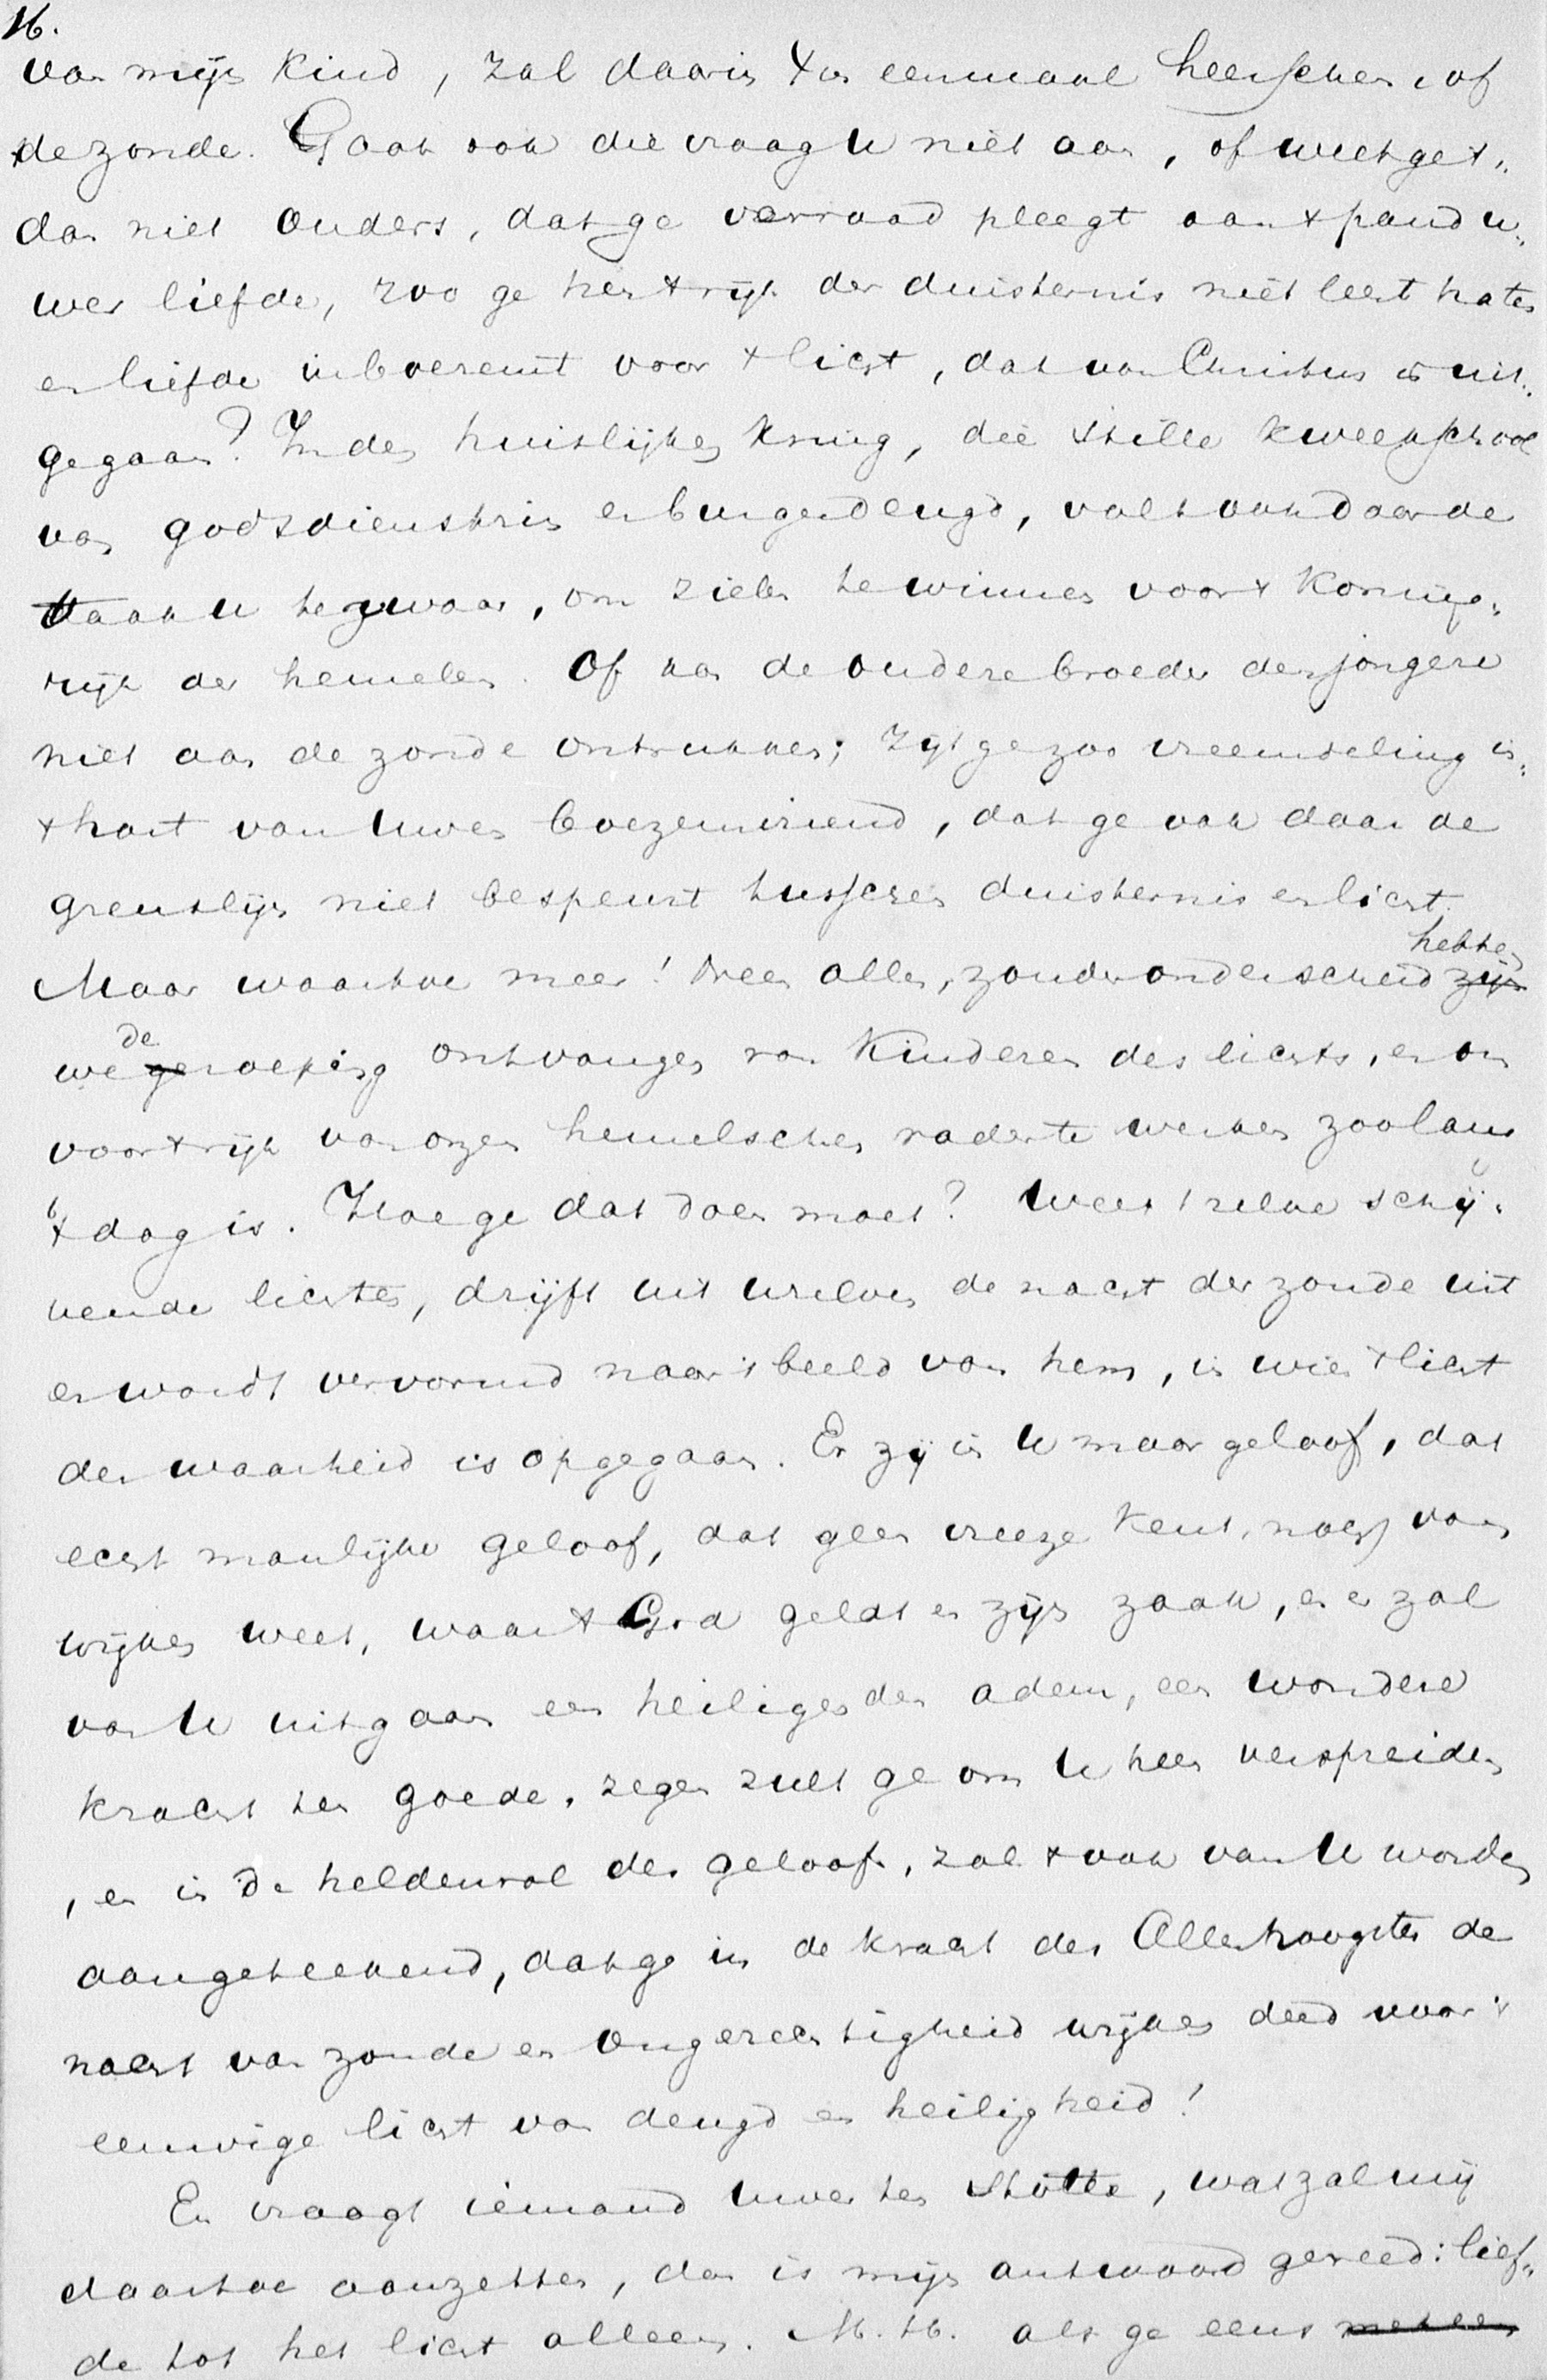 16.
van mijn kind, zal daarin 't eenmaal heerschen, of
de zonde. Gaat ook die vraag U niet aan, of weet ge 't
dan niet Ouders, dat ge verraad pleegt aan 't pand u-
wer liefde, zoo ge hen 't rijk der duisternis niet leert haten
en liefde inboezemt voor 't licht, dat van Christus is uit-
gegaan? In den huislijken kring, die stille kweekschool
van godsdienstzin en burgerdeugd, valt ook daar de
taak U te zwaar, om zielen te winnen voor 't Koning-
rijk der hemelen. Of kan de oudere broeder den jongere
niet aan de zonde ontrukken; zijt ge zoo vreemdeling in
't hart van Uwen boezemvriend, dat ge ook daar de
grenslijn niet bespeurt tusschen duisternis en licht.
Maar waartoe meer! Neen allen, zonder onderscheid hebben zijn
we de ge roeping ontvangen van Kinderen des lichts, en om
voor 't rijk van onzen hemelschen vader te werken zoolang
't dag is. Hoe ge dat doen moet? Weest zelve schij-
nende lichten, drijft uit uzelven de nacht der zonde uit
en wordt vervormd naar 't beeld van hem, in wien 't licht
der waarheid is opgegaan. Er zij in U maar geloof, dat
echt manlijke geloof, dat geen vreeze kent, noch van
wijken weet, waar 't God geldt en zijn zaak, en er zal
van U uitgaan een heiligende adem, een wondere
kracht ten goede, zegen zult ge om U heen verspreiden
, en in de heldenrol des geloofs, zal 't ook van U worden
aangeteekend, dat ge in de kracht des Allerhoogsten de
nacht van zonde en ongerechtigheid wijken deed voor 't
eeuwige licht van deugd en heiligheid!
En vraagt iemand Uwer ten slotte, wat zal mij
daartoe aanzetten, dan is mijn antwoord gereed: lief-
de tot het licht alleen. M. H. als ge eens